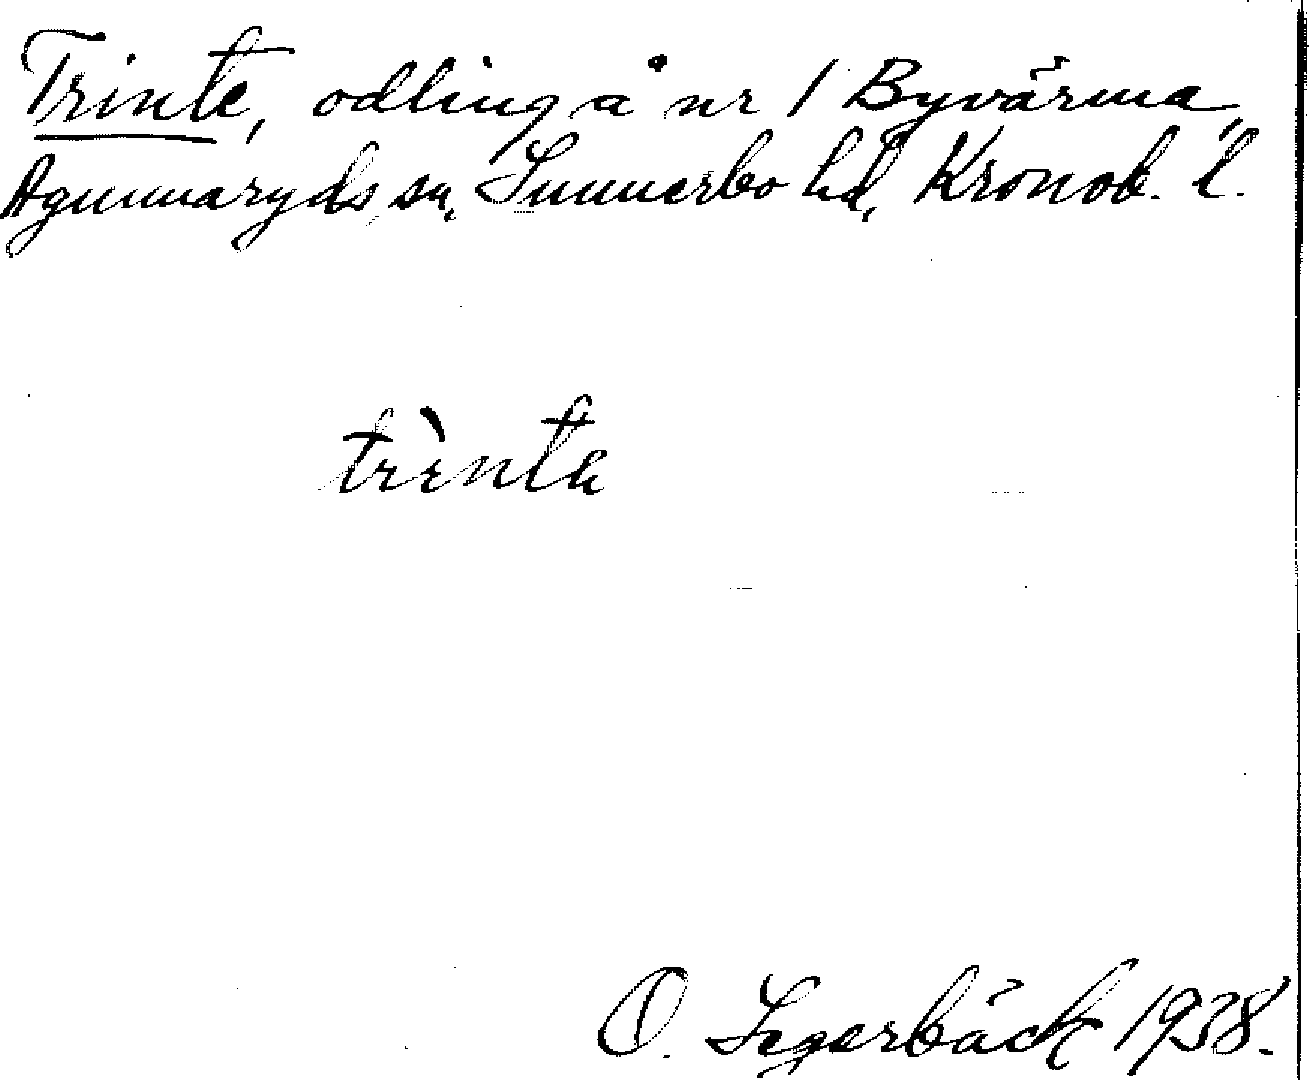 Trinte, odling å nr 1 Byvärma,
Agunnaryds sn, Sunnerbo hd, Kronob. l.
trìnte
O. Segerbäck 1938.